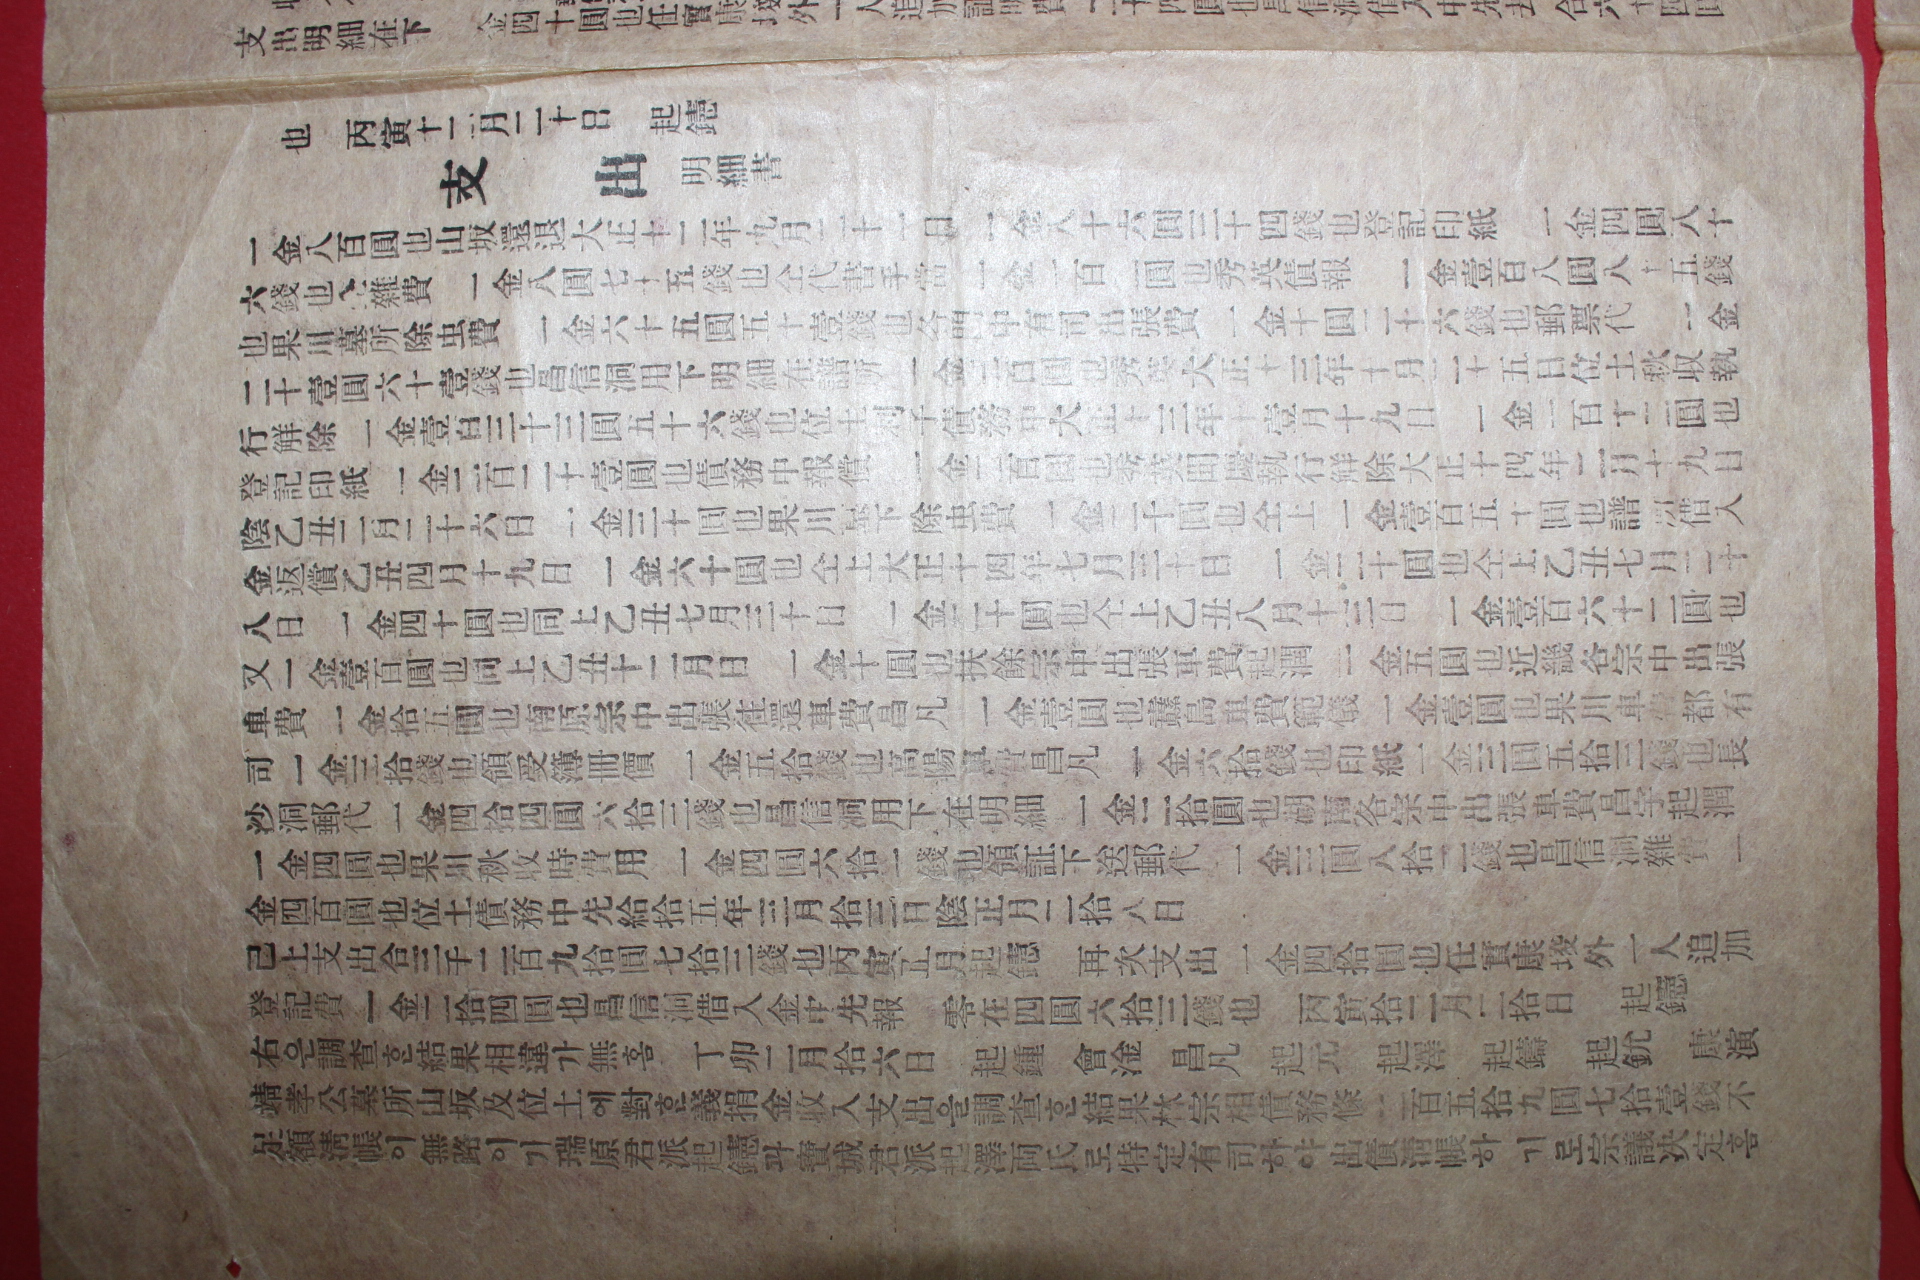 支出明細在下 金四十圓也任實康接外一人追加
也 丙寅十一月二十日 起鑓
支出明細書
一金八百圓也山坂還退大正十二年九月二十一日 一金八十六圓三十四錢也登記印紙 一金四圓八十
六錢也仝雜費 一金八圓七十五錢也仝代書手當 一金一百一圓也秀英債報 一金壹百八圓八十五錢
也果川墓所除虫費 一金六十五圓五十壹錢也各門中有司出張費 一金十圓二十六錢也郵票代 一金
二十壹圓六十壹錢也昌信洞用下明細在譜所 一金三百圓也秀英大正十三年十月二十五日位土秋収執
行解除 一金壹百三十三圓五十六錢也位土利子債務中大正十三年十壹月十九日 一金一百十二圓也
登記印紙 一金二百二十壹圓也債務中報償 一金二百圓也秀英間慶執行解除大正十四年二月十九日
陰乙丑二月二十六日 一金三十圓也果川墓下除虫費 一金三十圓也仝上 一金壹百五十圓也譜所借入
金返償乙丑四月十九日 一金六十圓也仝上大正十四年七月三十日 一金二十圓也仝上乙丑七月二十
八日 一金四十圓也同上乙丑七月三十日 一金二十圓也仝上乙丑八月十三日 一金壹百六十二圓也
又一金壹百圓也同上乙丑十二月日 一金十圓也扶餘宗中出張車費起潤 一金五圓也近畿各宗中出張
車費 一金拾五圓也南原宗中出張往還車費昌凡 一金壹圓也纛島車費範儀 一金壹圓也果川車費都有
司 一金三拾錢也領受簿冊價 一金五拾錢也高陽車費昌凡 一金六拾錢也印紙 一金三圓五拾三錢也長
沙洞郵代 一金四拾四圓六拾三錢也昌信洞用下在明細 一金二拾圓也湖南各宗中出張車費昌宇起潤
一金四圓也果川秋收時費用 一金四圓六拾一錢也領証下送郵代 一金三圓八拾二錢也昌信洞雜費 一
金四百圓也位土債務中先給拾五年三月拾三日陰正月二拾八日
已上支出合三千二百九拾圓七拾三錢也丙寅五月起鑓 再次支出 一金四拾圓也任實康接外一人追加
登記費 一金二拾四圓也昌信洞借入金中先報 零在四圓六拾三錢也 丙寅拾二月二拾日 起鑓
右은調查한結果相違가無喜 丁卯二月拾六日 起鍾 會淦 昌凡 起元 起澤 起鑄 起銳 康演
靖孝公墓所山坂及位土에對한義捐金收入支出을調查한結果林宗相債務條二百五拾九圓七拾壹錢不
足額淸帳이無路이기瑞原君派起鑓과寶城君派起澤兩氏로特定有司하야出債淸帳하기로宗議決定喜